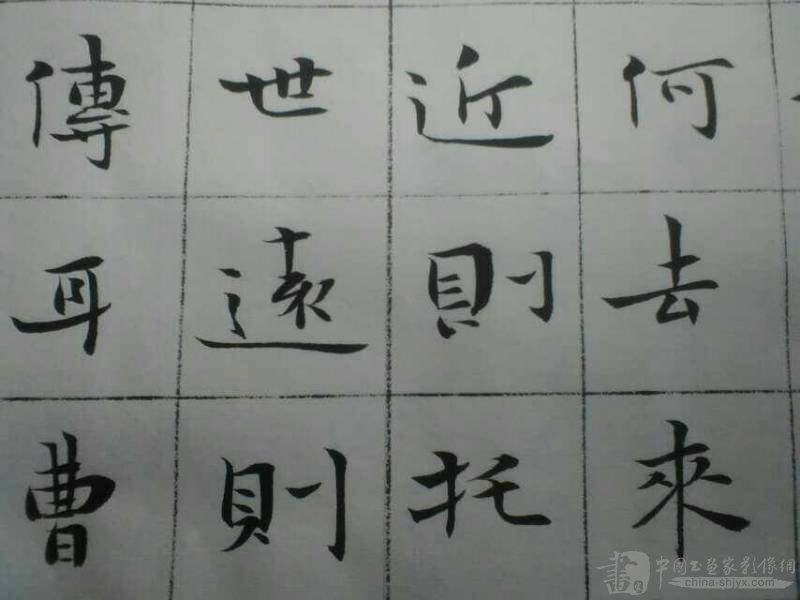 何去來
近則托
世遠則
傳耳曹
書 中国书画家影像網
china-shjyx.com